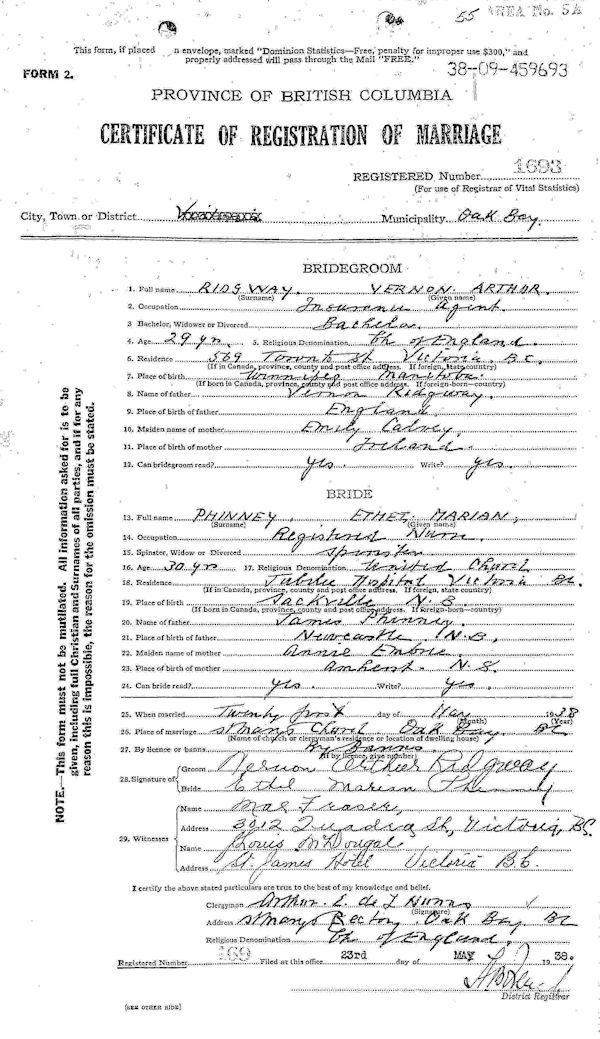 55 AREA No. 5A
This form, if placed n envelope, marked "Dominion Statistics—Free, penalty for improper use $300," and
properly addressed will pass through the Mail "FREE."
FORM 2.
38-09-459693
PROVINCE OF BRITISH COLUMBIA
CERTIFICATE OF REGISTRATION OF MARRIAGE
REGISTERED Number 1693
(For use of Registrar of Vital Statistics)
City, Town or District Municipality Oak Bay.
BRIDEGROOM
1. Full name RIDGWAY. VERNON. ARTHUR.
(Surname) (Given name)
2. Occupation Insurance Agent.
3 Bachelor, Widower or Divorced Bachelor
4. Age 29 yrs. 5. Religious Denomination Ch of England.
6. Residence 569 Toronto St Victoria. B.C.
(If in Canada, province, county and post office address. If foreign, state country)
7. Place of birth Winnipeg Manitoba.
(If born in Canada, province, county and post office address. If foreign-born—country)
8. Name of father Vernon Ridgway.
9. Place of birth of father England.
10. Maiden name of mother Emily
11. Place of birth of mother Ireland.
12. Can bridegroom read? yes. Write? yes.
BRIDE
13. Full name PHINNEY, ETHEL MARIAN,
(Surname) (Given name)
14. Occupation Registered Nurse.
15. Spinster, Widow or Divorced Spinster
16. Age 30 yrs 17. Religious Denomination United Church
18. Residence Jubilee Hospital Victoria BC.
(If in Canada, province, county and post office address. If foreign, state country)
19. Place of birth Sackville N.B.
(If born in Canada, province, county and post office address. If foreign-born—country)
20. Name of father James Phinney.
21. Place of birth of father Newcastle N.B.
22. Maiden name of mother Annie Embree.
23. Place of birth of mother Amherst. N.S.
24. Can bride read? yes. Write? yes.
25. When married Twenty first day of May 1938
(Month) (Year)
26. Place of marriage St Marys Church Oak Bay. BC
(Name of church or clergyman's residence or location of dwelling house)
27. By licence or banns By Banns.
(If by licence, give number)
28. Signature of Groom Vernon Arthur Ridgway
Bride Ethel Marian Phinney
29. Witnesses
Name Mae Fraser,
Address 3012 Quadra St, Victoria, B.C.
Name Louis McDougal
Address St. James Hotel Victoria B.C.
I certify the above stated particulars are true to the best of my knowledge and belief.
Clergyman Arthur. E. de L Nunns
(Signature)
Address St Marys Rectory. Oak Bay BC
Religious Denomination Ch of England.
Registered Number 169 Filed at this office 23rd day of MAY 1938.
District Registrar
(SEE OTHER SIDE)
NOTE.—This form must not be mutilated. All information asked for is to be
given, including full Christian and Surnames of all parties, and if for any
reason this is impossible, the reason for the omission must be stated.